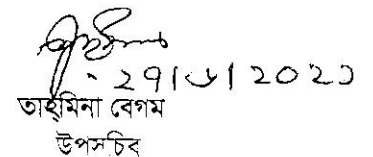 ২৭।৬।২০২১
তাহমিনা বেগম
উপসচিব